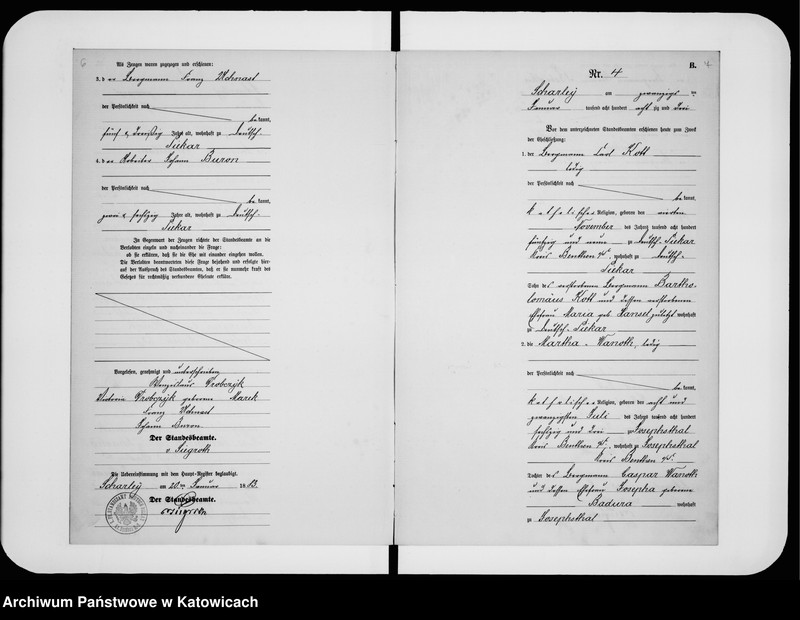 6
Als Zeugen waren zugezogen und erschienen:
3. der Bergmann Franz
der Persönlichkeit nach
bekannt,
fünf u. dreißig Jahre alt, wohnhaft zu Deutsch-
Piekar
4. der Arbeiter Johann Buron
der Persönlichkeit nach
bekannt,
zwei u. sechzig Jahre alt, wohnhaft zu Deutsch-
Piekar
In Gegenwart der Zeugen richtete der Standesbeamte an die
Verlobten einzeln und nacheinander die Frage:
ob sie erklären, daß sie die Ehe mit einander eingehen wollen.
Die Verlobten beantworteten diese Frage bejahend und erfolgte hier-
auf der Ausspruch des Standesbeamten, daß er sie nunmehr kraft des
Gesetzes für rechtmäßig verbundene Eheleute erkläre.
Vorgelesen, genehmigt und unterschrieben
Drobczyk
Drobczyk geborene Marek
Franz
Johann Buron
Der Standesbeamte.
v Siegroth
Die Uebereinstimmung mit dem Haupt-Register beglaubigt.
Scharley am 20ten Januar 1883.
Der Standesbeamte.
B.
Nr. 4
Scharley am zwanzigsten
Januar tausend acht hundert achtzig und drei
Vor dem unterzeichneten Standesbeamten erschienen heute zum Zweck
der Eheschließung:
1. der Bergmann Carl Kott
ledig
der Persönlichkeit nach
bekannt,
katholischer Religion, geboren den vierten
November des Jahres tausend acht hundert
fünfzig und neun zu Deutsch-Piekar
Kreis Beuthen, wohnhaft zu Deutsch-
Piekar
Sohn des verstorbenen Bergmann Bartho-
lomäus Kott und dessen verstorbenen
Ehefrau Maria geb. Hansel zuletzt wohnhaft
zu Deutsch-Piekar
2. die Martha Wanoth, ledig
der Persönlichkeit nach
bekannt,
katholischer Religion, geboren den acht und
zwanzigsten Juli des Jahres tausend acht hundert
sechzig und drei zu Josephsthal
Kreis Beuthen, wohnhaft zu Josephsthal
Kreis Beuthen
Tochter des Bergmann Caspar Wanoth
und dessen Ehefrau Josepha geborene
Badura wohnhaft
zu Josephsthal
Archiwum Państwowe w Katowicach